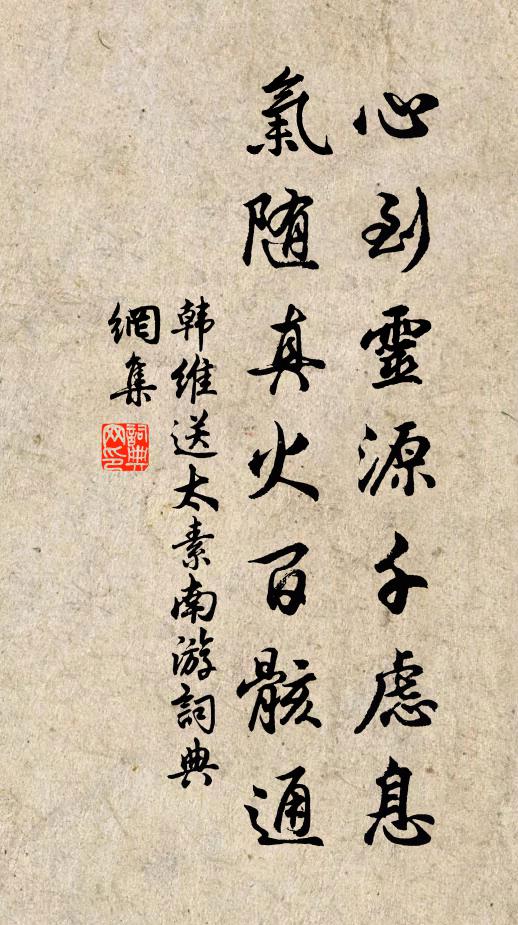 心到靈源千慮息
氣随真火百骸通
韩維送太素南游詞典
網集
詞典
网印